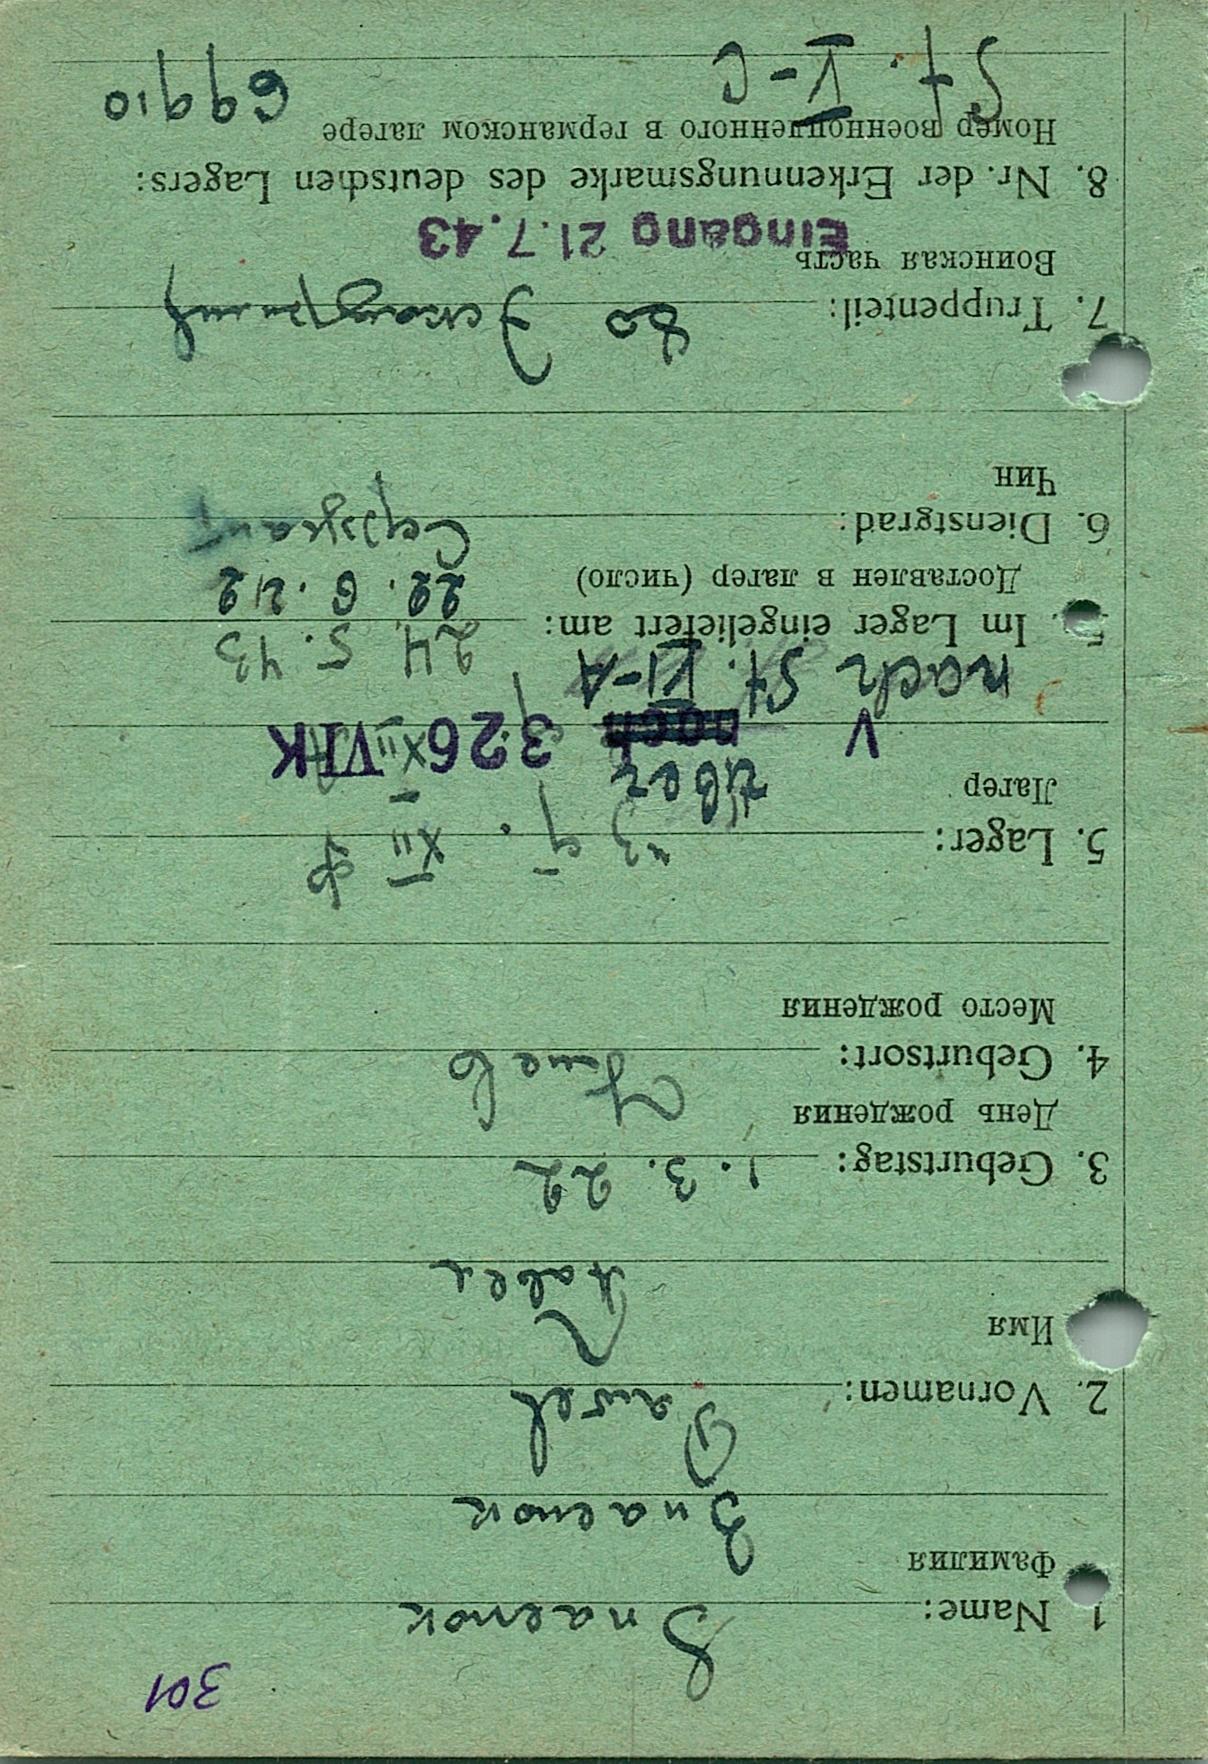 301
1. Name: Snaenok
Фамилия
Знаенок
2. Vornamen: Pawel
Имя
Павел
3. Geburtstag: 1. 3. 22
День рождения
4. Geburtsort:
Место рождения
5. Lager: XII F
Лагер
über
V nach 326 VI K XII
nach St. VI-A
5. Im Lager eingeliefert am: 24 5. 43
Доставлен в лагер (число) 22. 6. 42
6. Dienstgrad: Сержант
Чин
7. Truppenteil: 80
Воинская часть
Eingang 21.7.43
8. Nr. der Erkennungsmarke des deutschen Lagers:
Номер военнопленного в германском лагере 69910
St. V-C